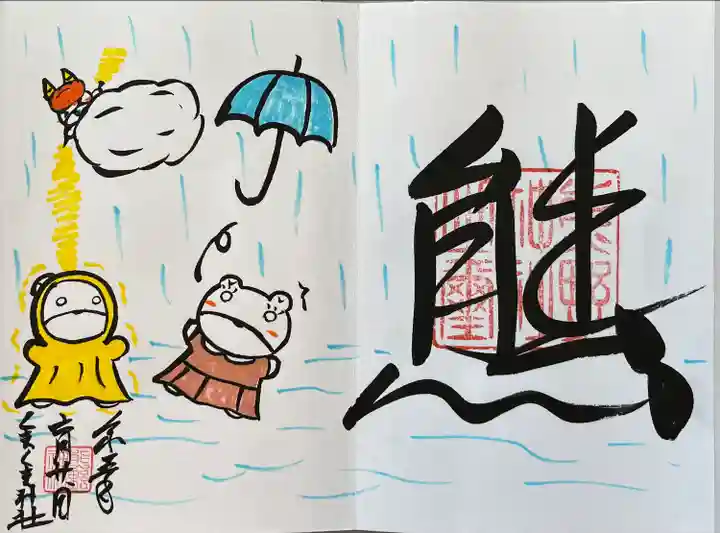 熊
令和五年
六月廿日
くまくま神社